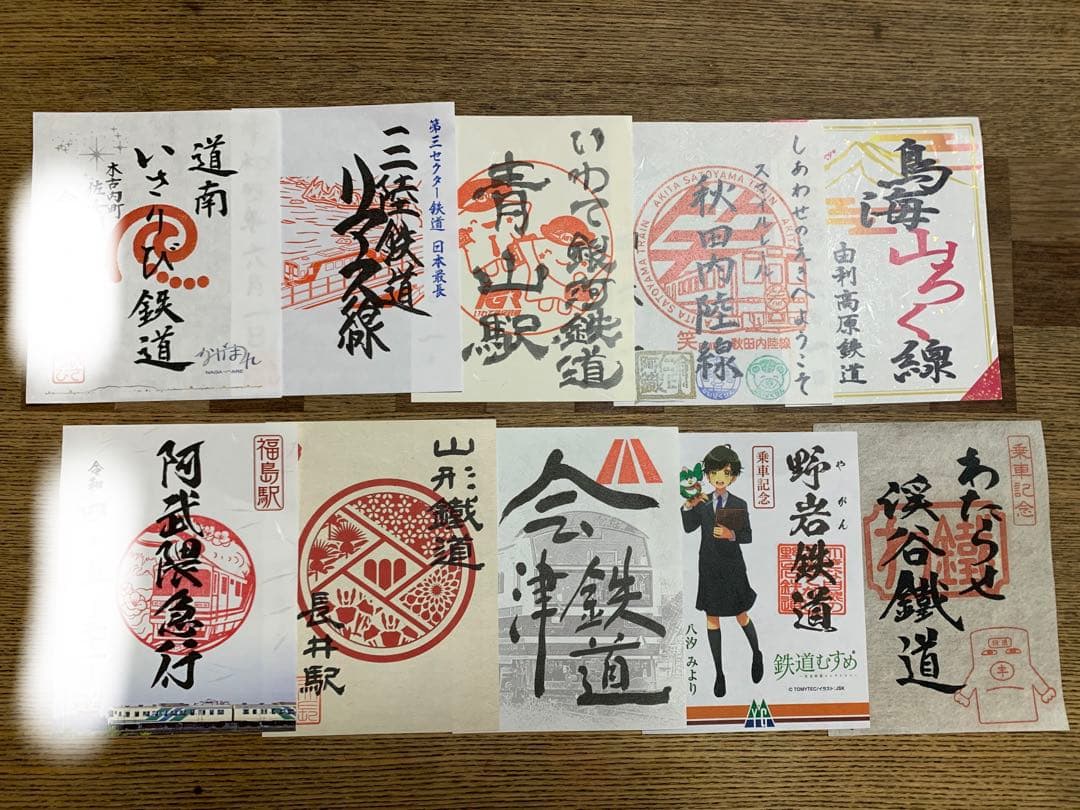 道南
いさりび鉄道
木古内町
ながまれ
NAGA〜MARE
第三セクター鉄道 日本最長
三陸鉄道
リアス線
いわて銀河鉄道
青山駅
IGR
しあわせのえきへようこそ
スマイルレール
秋田内陸線
AKITA SATOYAMA TRAIN
笑
秋田内陸線
鳥海
山ろく線
由利高原鉄道
福島駅
阿武隈急行
令和
山形鐵道
長井駅
会津鉄道
乗車記念
野岩鉄道
やがん
八汐みより
鉄道むすめ
© TOMYTEC/イラスト:JSK
乗車記念
わたらせ
渓谷鐵道